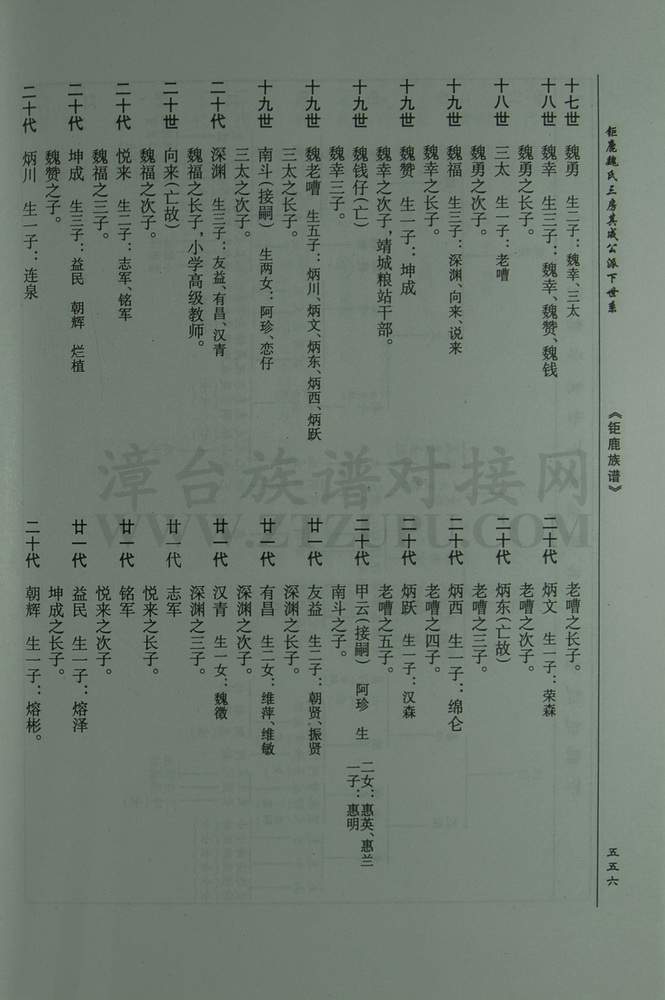 钜鹿魏氏三房其成公派下世系
《钜鹿族谱》
五五六
十七世 魏勇 生二子：魏幸、三太
十八世 魏幸 生三子：魏幸、魏赞、魏钱
魏勇之长子。
十八世 三太 生一子：老嘈
魏勇之次子。
十九世 魏福 生三子：深渊、向来、说来
魏幸之长子。
十九世 魏赞 生一子：坤成
魏幸之次子，靖城粮站干部。
十九世 魏钱仔（亡）
魏幸三子。
十九世 魏老嘈 生五子：炳川、炳文、炳东、炳西、炳跃
三太之长子。
十九世 南斗（接嗣） 生两女：阿珍、恋仔
三太之次子。
二十代 深渊 生三子：友益、有昌、汉青
魏福之长子，小学高级教师。
二十世 向来（亡故）
魏福之次子。
二十代 悦来 生二子：志军、铭军
魏福之三子。
二十代 坤成 生三子：益民 朝辉 烂植
魏赞之子。
二十代 炳川 生一子：连泉
老嘈之长子。
二十代 炳文 生一子：荣森
老嘈之次子。
二十代 炳东（亡故）
老嘈之三子。
二十代 炳西 生一子：绵仑
老嘈之四子。
二十代 炳跃 生一子：汉森
老嘈之五子。
二十代 甲云（接嗣） 阿珍 生 二女：惠英、惠兰 一子：惠明
南斗之子。
廿一代 友益 生二子：朝贤、振贤
深渊之长子。
廿一代 有昌 生二女：维萍、维敏
深渊之次子。
廿一代 汉青 生一女：魏微
深渊之三子。
廿一代 志军
悦来之长子。
廿一代 铭军
悦来之次子。
廿一代 益民 生一子：熔泽
坤成之长子。
二十代 朝辉 生一子：熔彬。
漳台族谱对接网
WWW.ZTZUPU.COM